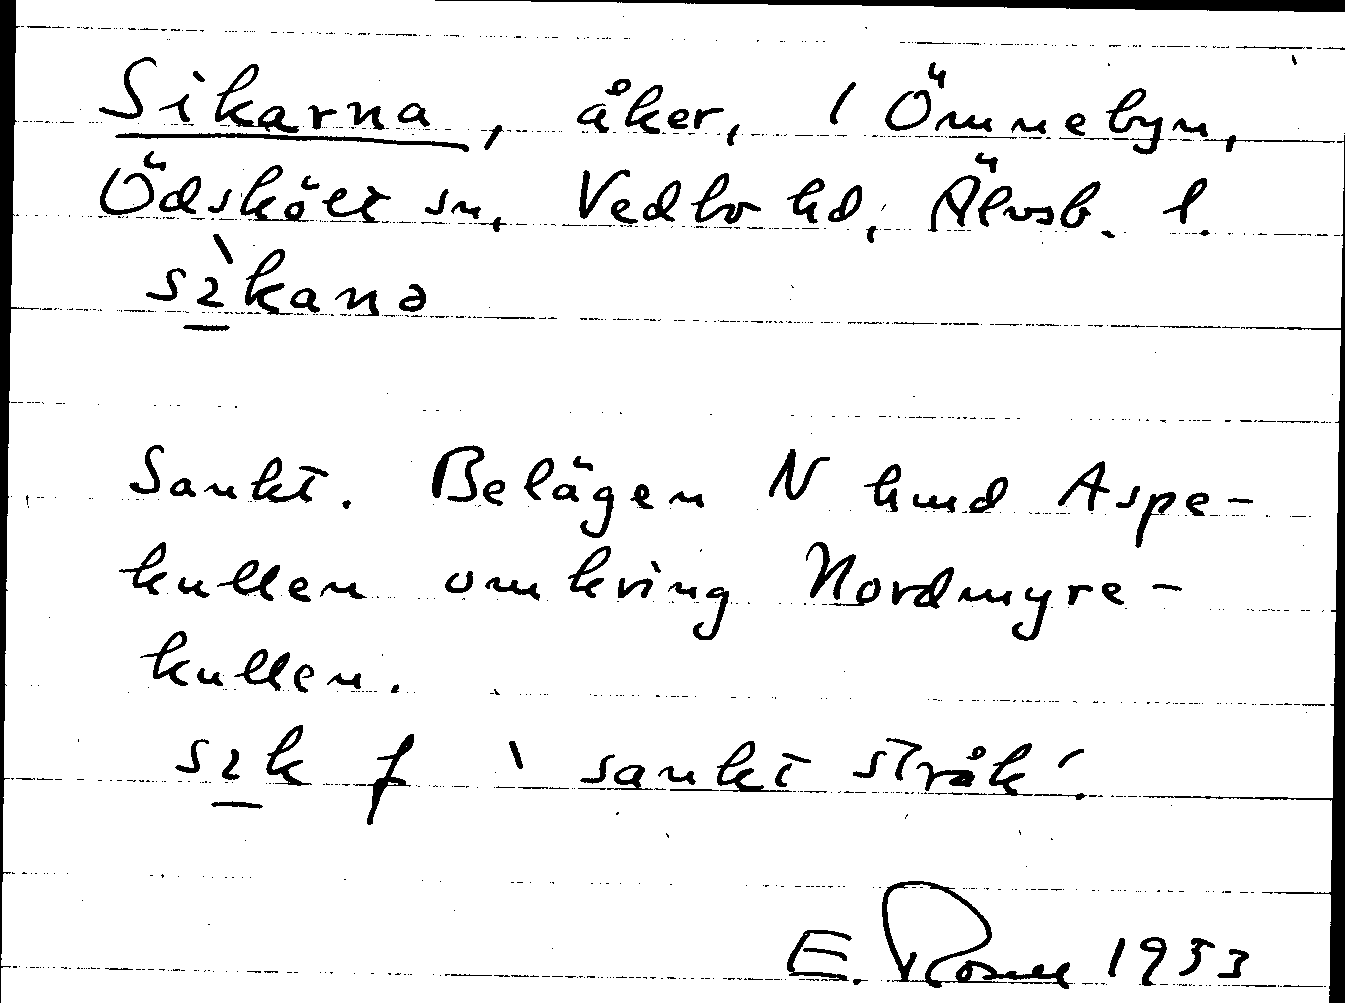 Sikarna, åker, i Ömnebyn,
Ödskölt sn, Vedbo hd, Älvsb. l.
sìkanə
Sankt. Belägen N hund Aspe-
kullen omkring Nordmyre-
kullen.
sık f ' sankt stråk'.
E. 1953